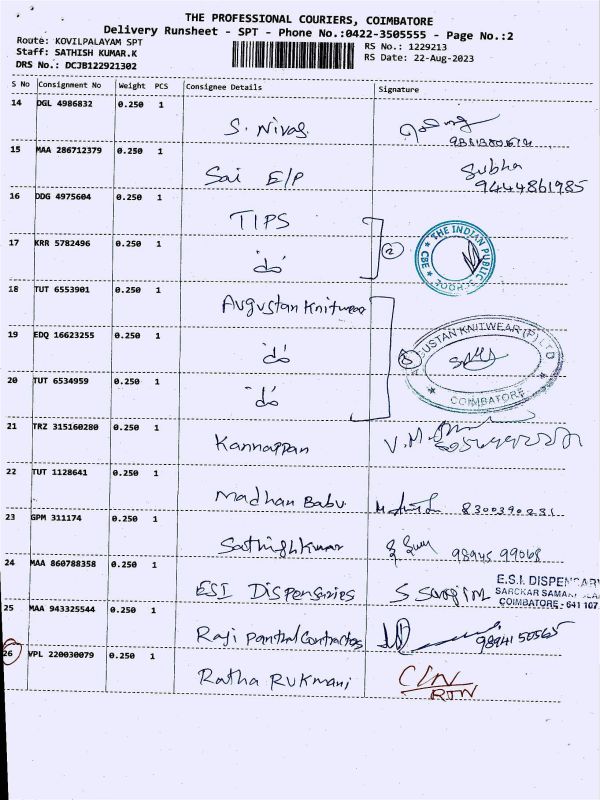 THE PROFESSIONAL COURIERS, COIMBATORE
Delivery Runsheet - SPT - Phone No.:0422-3505555 - Page No.:2
Route: KOVILPALAYAM SPT
RS No.: 1229213
Staff: SATHISH KUMAR.K
RS Date: 22-Aug-2023
DRS No.: DCJB122921302
S No Consignment No Weight PCS Consignee Details Signature
14 DGL 4986832 0.250 1
S. Nivas
15 MAA 286712379 0.250 1
Sai E/P
Subha
9444861985
16 DDG 4975604 0.250 1
TIPS
THE INDIAN PUBLIC SCHOOL
CBE
17 KRR 5782496 0.250 1
do
2
18 TUT 6553901 0.250 1
Augustan Knitwear
19 EDQ 16623255 0.250 1
do
3
USTAN KNITWEAR (P) LTD
COIMBATORE
20 TUT 6534959 0.250 1
do
21 TRZ 315160280 0.250 1
Kannappan
V.M.
22 TUT 1128641 0.250 1
Madhan Babu
8300390231
23 GPM 311174 0.250 1
Sathishkumar
98945 99068
24 MAA 860788358 0.250 1
ESI Dispensizies
E.S.I. DISPENSARY
SARCKAR SAMA
COIMBATORE - 641 107
25 MAA 943325544 0.250 1
Raji Panthal Contractos
9894150565
26 VPL 220030079 0.250 1
Ratha Rukmani
C/N
RTN